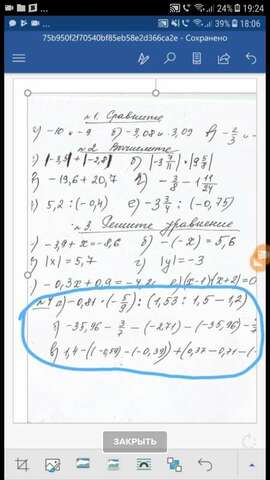 24% 19:24
29% 18:06
75b950f2f70540bf85eb58e2d366ca2e - Сохранено
№1. Сравните
) -10 и -9 б) -3,08 и -3,09 в) -2/3 и
№2 Вычислите
) |-3,5| + |-2,8| б) |-3 7/11| · |9 5/8|
) -19,6 + 20,7 -3/8 - 1 11/24
) 5,2 : (-0,4) е) -3 3/4 : (-0,75)
№3. Решите уравнение
) -3,9 + x = -8,6 б) -(-x) = 5,6
) |x| = 5,7 г) |y| = -3
) -0,3x + 0,9 = -4,2 е) (x-1)(x+2)=0
№4 а) -0,81 · (-5/9) : (1,53 : 1,5 - 1,2)
б) -35,96 - 3/7 - (-2,71) - (-35,96) -
в) 1,4 - (-0,89) - (-0,39)) + (0,37 - 0,71 - (-
ЗАКРЫТЬ